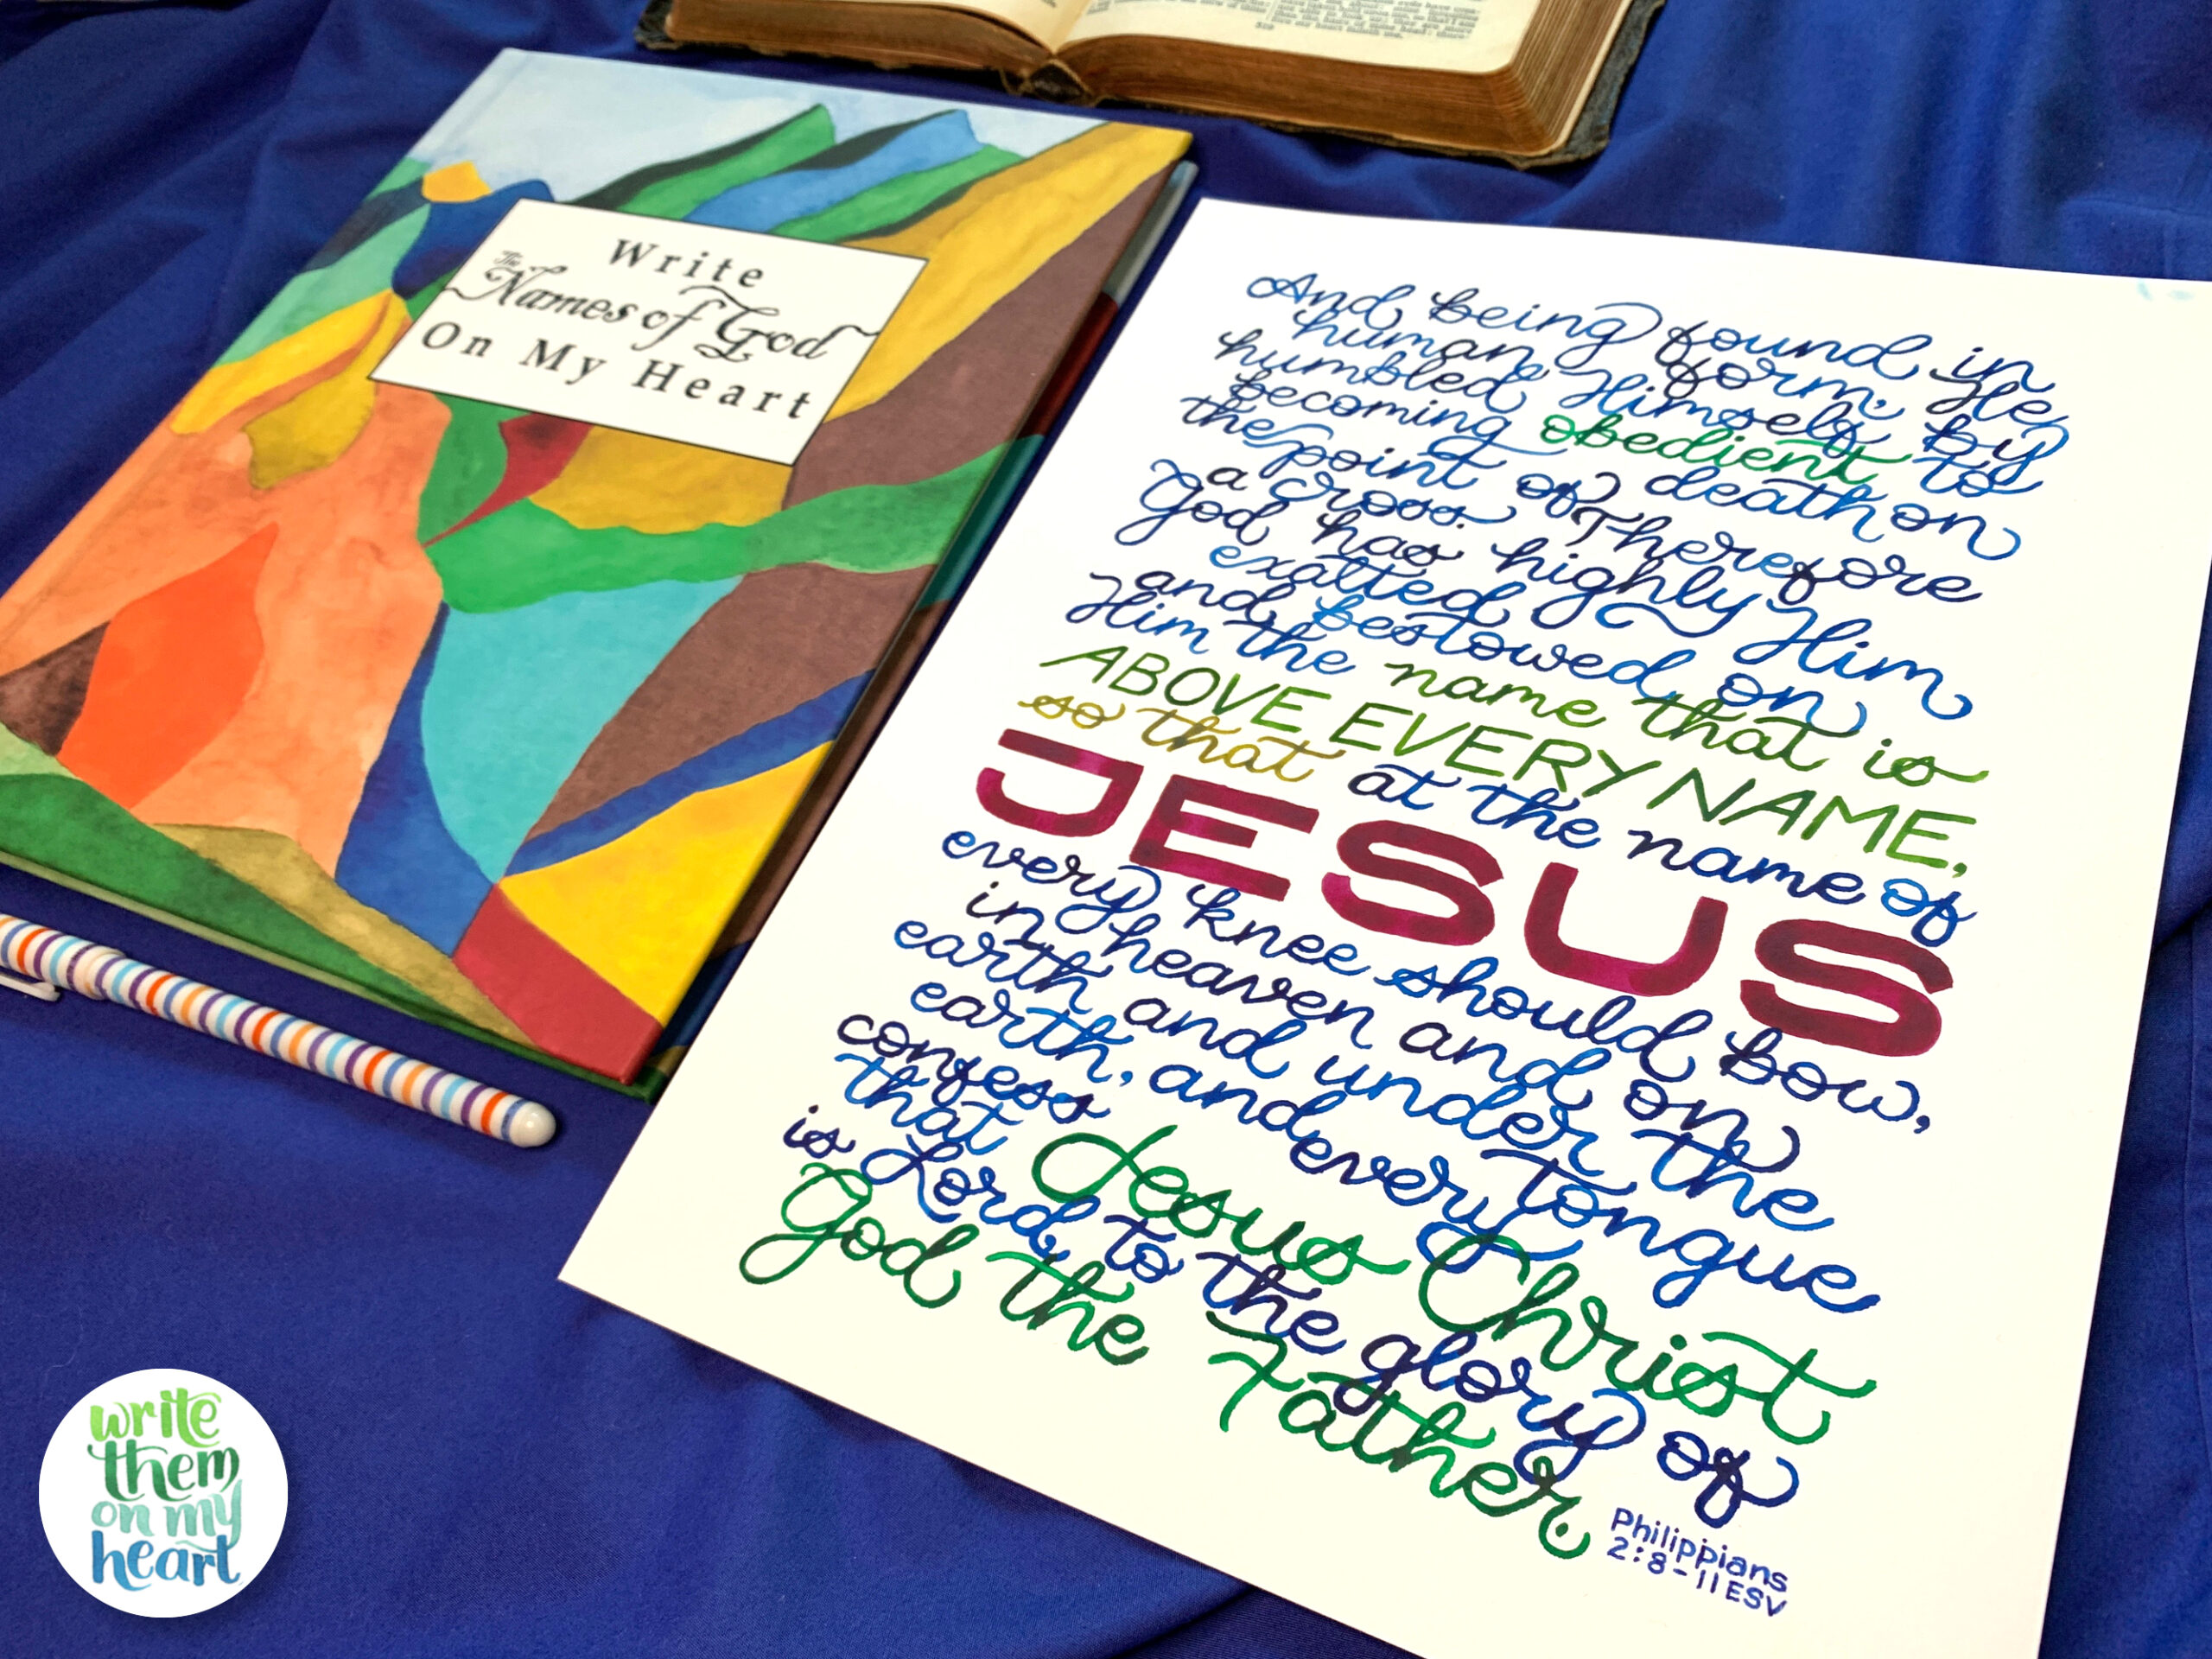 Write
The
Names of God
On My Heart
And being found in
human form, He
humbled Himself by
becoming obedient to
the point of death on
a cross. Therefore
God has highly
exalted Him
and bestowed on
Him the name that is
ABOVE EVERY NAME,
so that at the name of
JESUS
every knee should bow,
in heaven and on
earth and under the
earth, and every tongue
confess
that Jesus Christ
is Lord, to the glory of
God the Father.
Philippians
2:8-11 ESV
write
them
on my
heart